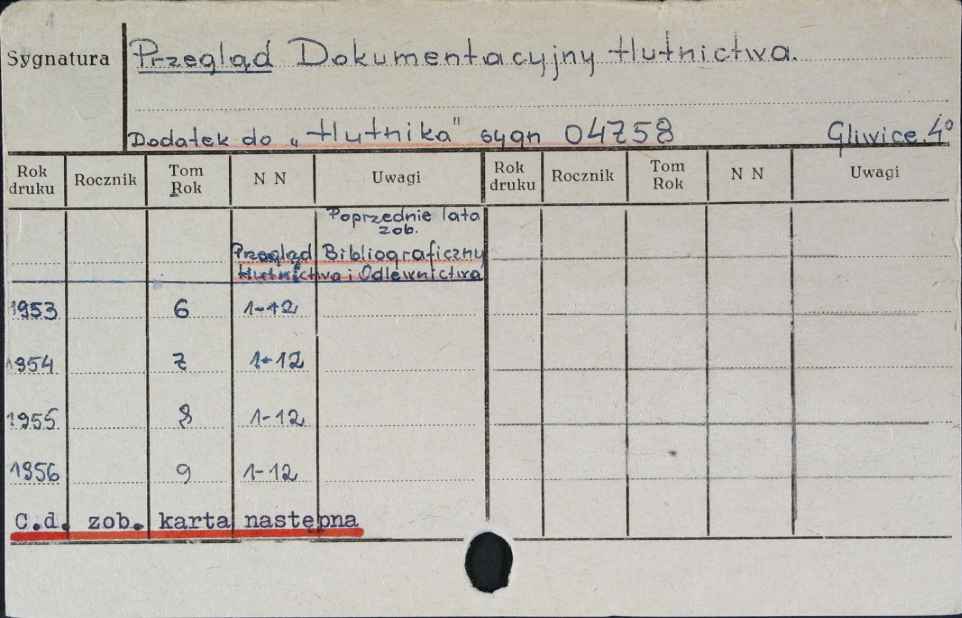 Sygnatura Przegląd Dokumentacyjny Hutnictwa.
Dodatek do „Hutnika" sygn 04758 Gliwice. 4°
Rok druku Rocznik Tom Rok N N Uwagi Rok druku Rocznik Tom Rok N N Uwagi
Poprzednie lata
zob.
Przegląd Bibliograficzny
Hutnictwa i Odlewnictwa
1953 6 1-12
1954 7 1-12
1955 8 1-12
1956 9 1-12
C.d. zob. karta następna